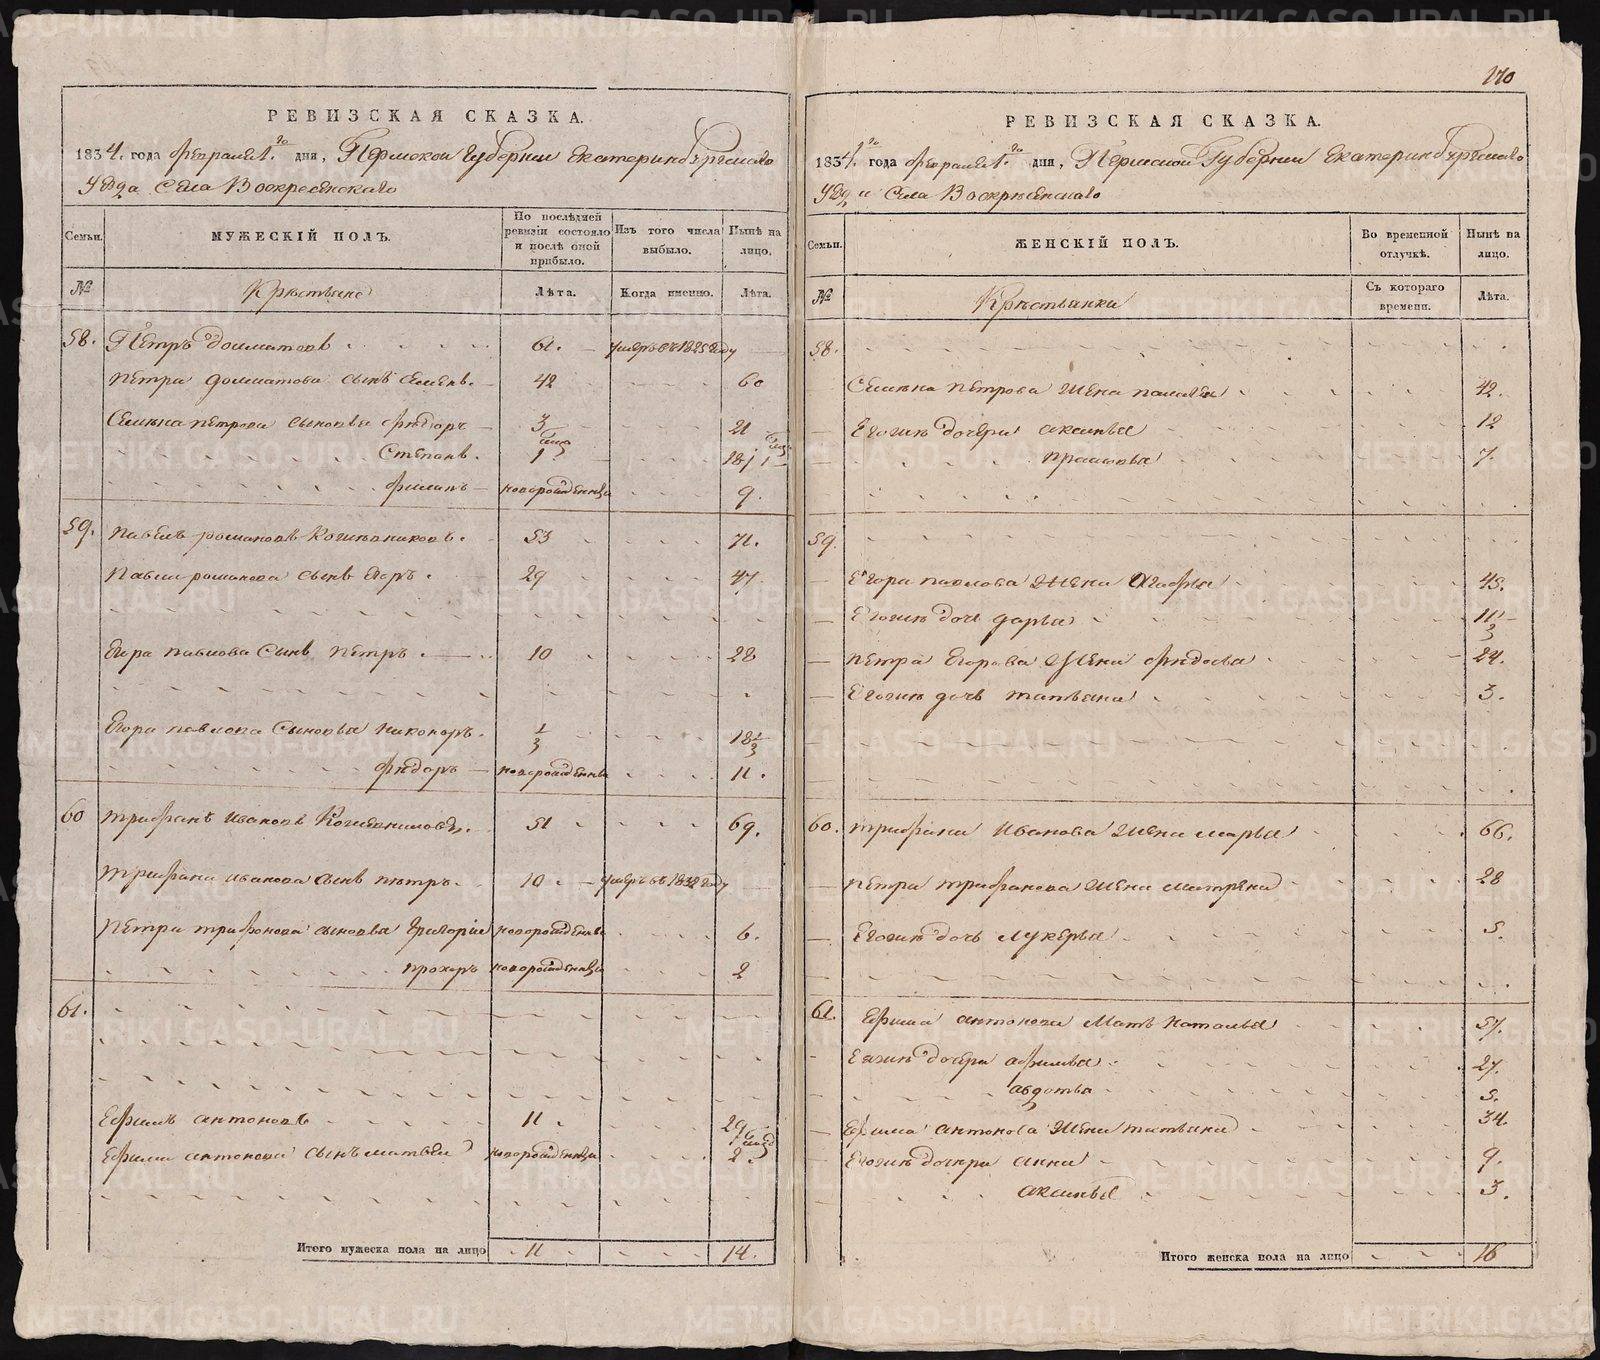 170
РЕВИЗСКАЯ СКАЗКА.
1834. года февраля 1. го дня, Пермской Губернии Екатеринбургскаго
Уѣзда Села Воскресенскаго
Семьи.
МУЖЕСКІЙ ПОЛЪ.
По послѣдней ревизіи состояло и послѣ оной прибыло.
Изъ того числа выбыло.
Нынѣ на лицо.
№
Крѣстьяне
Лѣта.
Когда именно.
Лѣта.
58. Пётръ Долматовъ 61. умеръ въ 1825 году
Петра долматова сынъ Семенъ. 42 60
Семена петрова сыновья Фѣдоръ 3 21
Степанъ. 1 18
Филипъ новорожденны 9.
59. Павелъ романовъ Кожевниковъ. 53 71.
Павла романова сынъ Егоръ. 29 47.
Егора павлова Сынъ Петръ. 10 28
Егора павлова Сыновья Никоноръ. 1/3 18 1/3
Фѣдоръ новорожденны 11.
60 Трифанъ Ивановъ Кожевниковъ. 51 69.
Трифана иванова сынъ петръ. 10. умеръ въ 1832 году
Петра трифонова сыновья Григорій новорожденны 6.
прохоръ новорожденны 2
61.
Ефимъ антоновъ 11. 29.
Ефима антонова сынъ матвей новорожденны 2.
Итого мужеска пола на лицо 11 14.
РЕВИЗСКАЯ СКАЗКА.
1834. года февраля 1. го дня, Пермской Губернии Екатеринбургскаго
Уѣзда Села Воскресенскаго
Семьи.
ЖЕНСКІЙ ПОЛЪ.
Во временной отлучкѣ.
Нынѣ на лицо.
№
Крѣстьянки
Съ котораго времени.
Лѣта.
58.
Семена петрова жена 42.
Егожъ дочери аксинья 12
7.
59.
Егора павлова жена Агафья 45.
Егожъ дочь дарья 11 1/3
петра Егорова жена Фѣдосья 24.
Егожъ дочь татьяна 3.
60. трифана Иванова жена марья 66.
петра трифанова жена Матрена 28
Егожъ дочь лукерья 5.
61. Ефима антонова Мать наталья 57.
Егожъ дочери афимья 27.
авдотья 5.
Ефима антонова жена татьяна 34.
Егожъ дочери анна 9.
аксинья 3.
Итого женска пола на лицо 16
METRIKI.GASO-URAL.RU